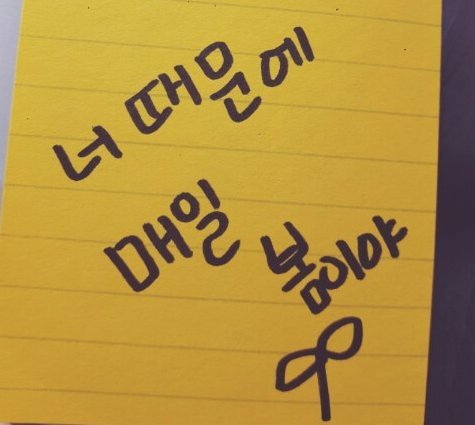 너 때문에
매일 봄이야